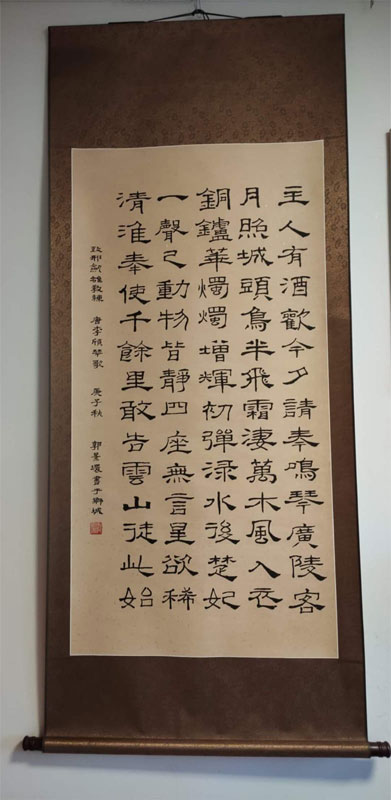 主人有酒歡今夕請奏鳴琴廣陵客
月照城頭烏半飛霜淒萬木風入衣
銅鑪華燭燭增輝初彈淥水後楚妃
一聲已動物皆靜四座無言星欲稀
清淮奉使千餘里敢告雲山從此始
致邢劍雄教練 唐李頎琴歌 庚子秋 郭景環書于聊城